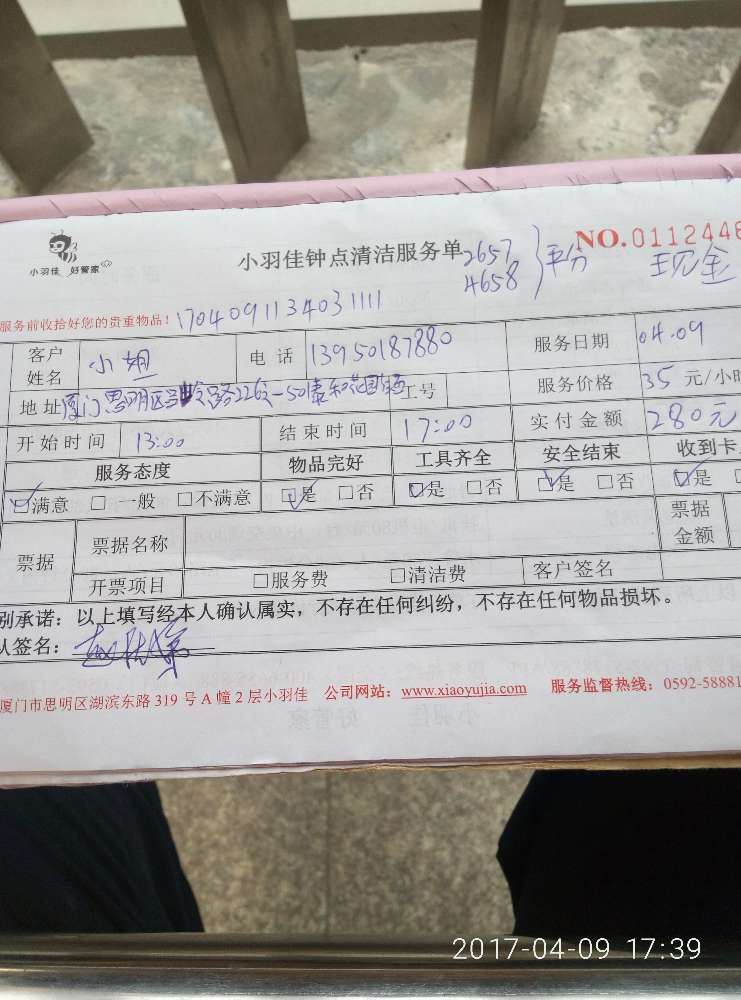 小羽佳 好管家
小羽佳钟点清洁服务单
2657
4658
平分
NO.0112446
现金
服务前收拾好您的贵重物品!
1704091134031111
客户姓名 小姐 电话 13950187880 服务日期 04.09
地址 厦门思明区 路226 -50泰和花园 工号 服务价格 35 元/小时
开始时间 13:00 结束时间 17:00 实付金额 280元
服务态度 物品完好 工具齐全 安全结束 收到卡
☑满意 □一般 □不满意 ☑是 □否 ☑是 □否 ☑是 □否 ☑是
票据 票据名称 票据金额
开票项目 □服务费 □清洁费 客户签名
别承诺:以上填写经本人确认属实,不存在任何纠纷,不存在任何物品损坏。
人签名:
厦门市思明区湖滨东路 319 号 A 幢 2 层小羽佳 公司网站:www.xiaoyujia.com 服务监督热线:0592-58881
2017-04-09 17:39